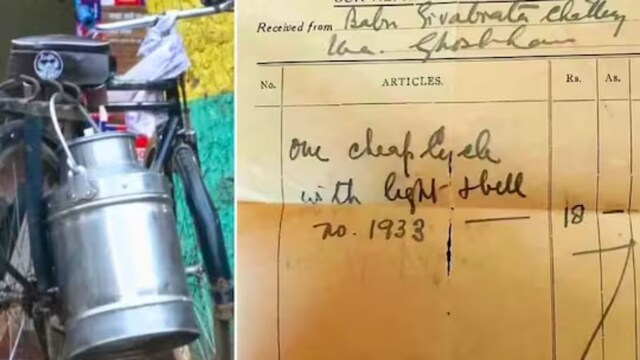 Received from Babu Sivabrata
No. ARTICLES. Rs. As.
one cheap Cycle
with light & bell
no. 1933 — 18 —